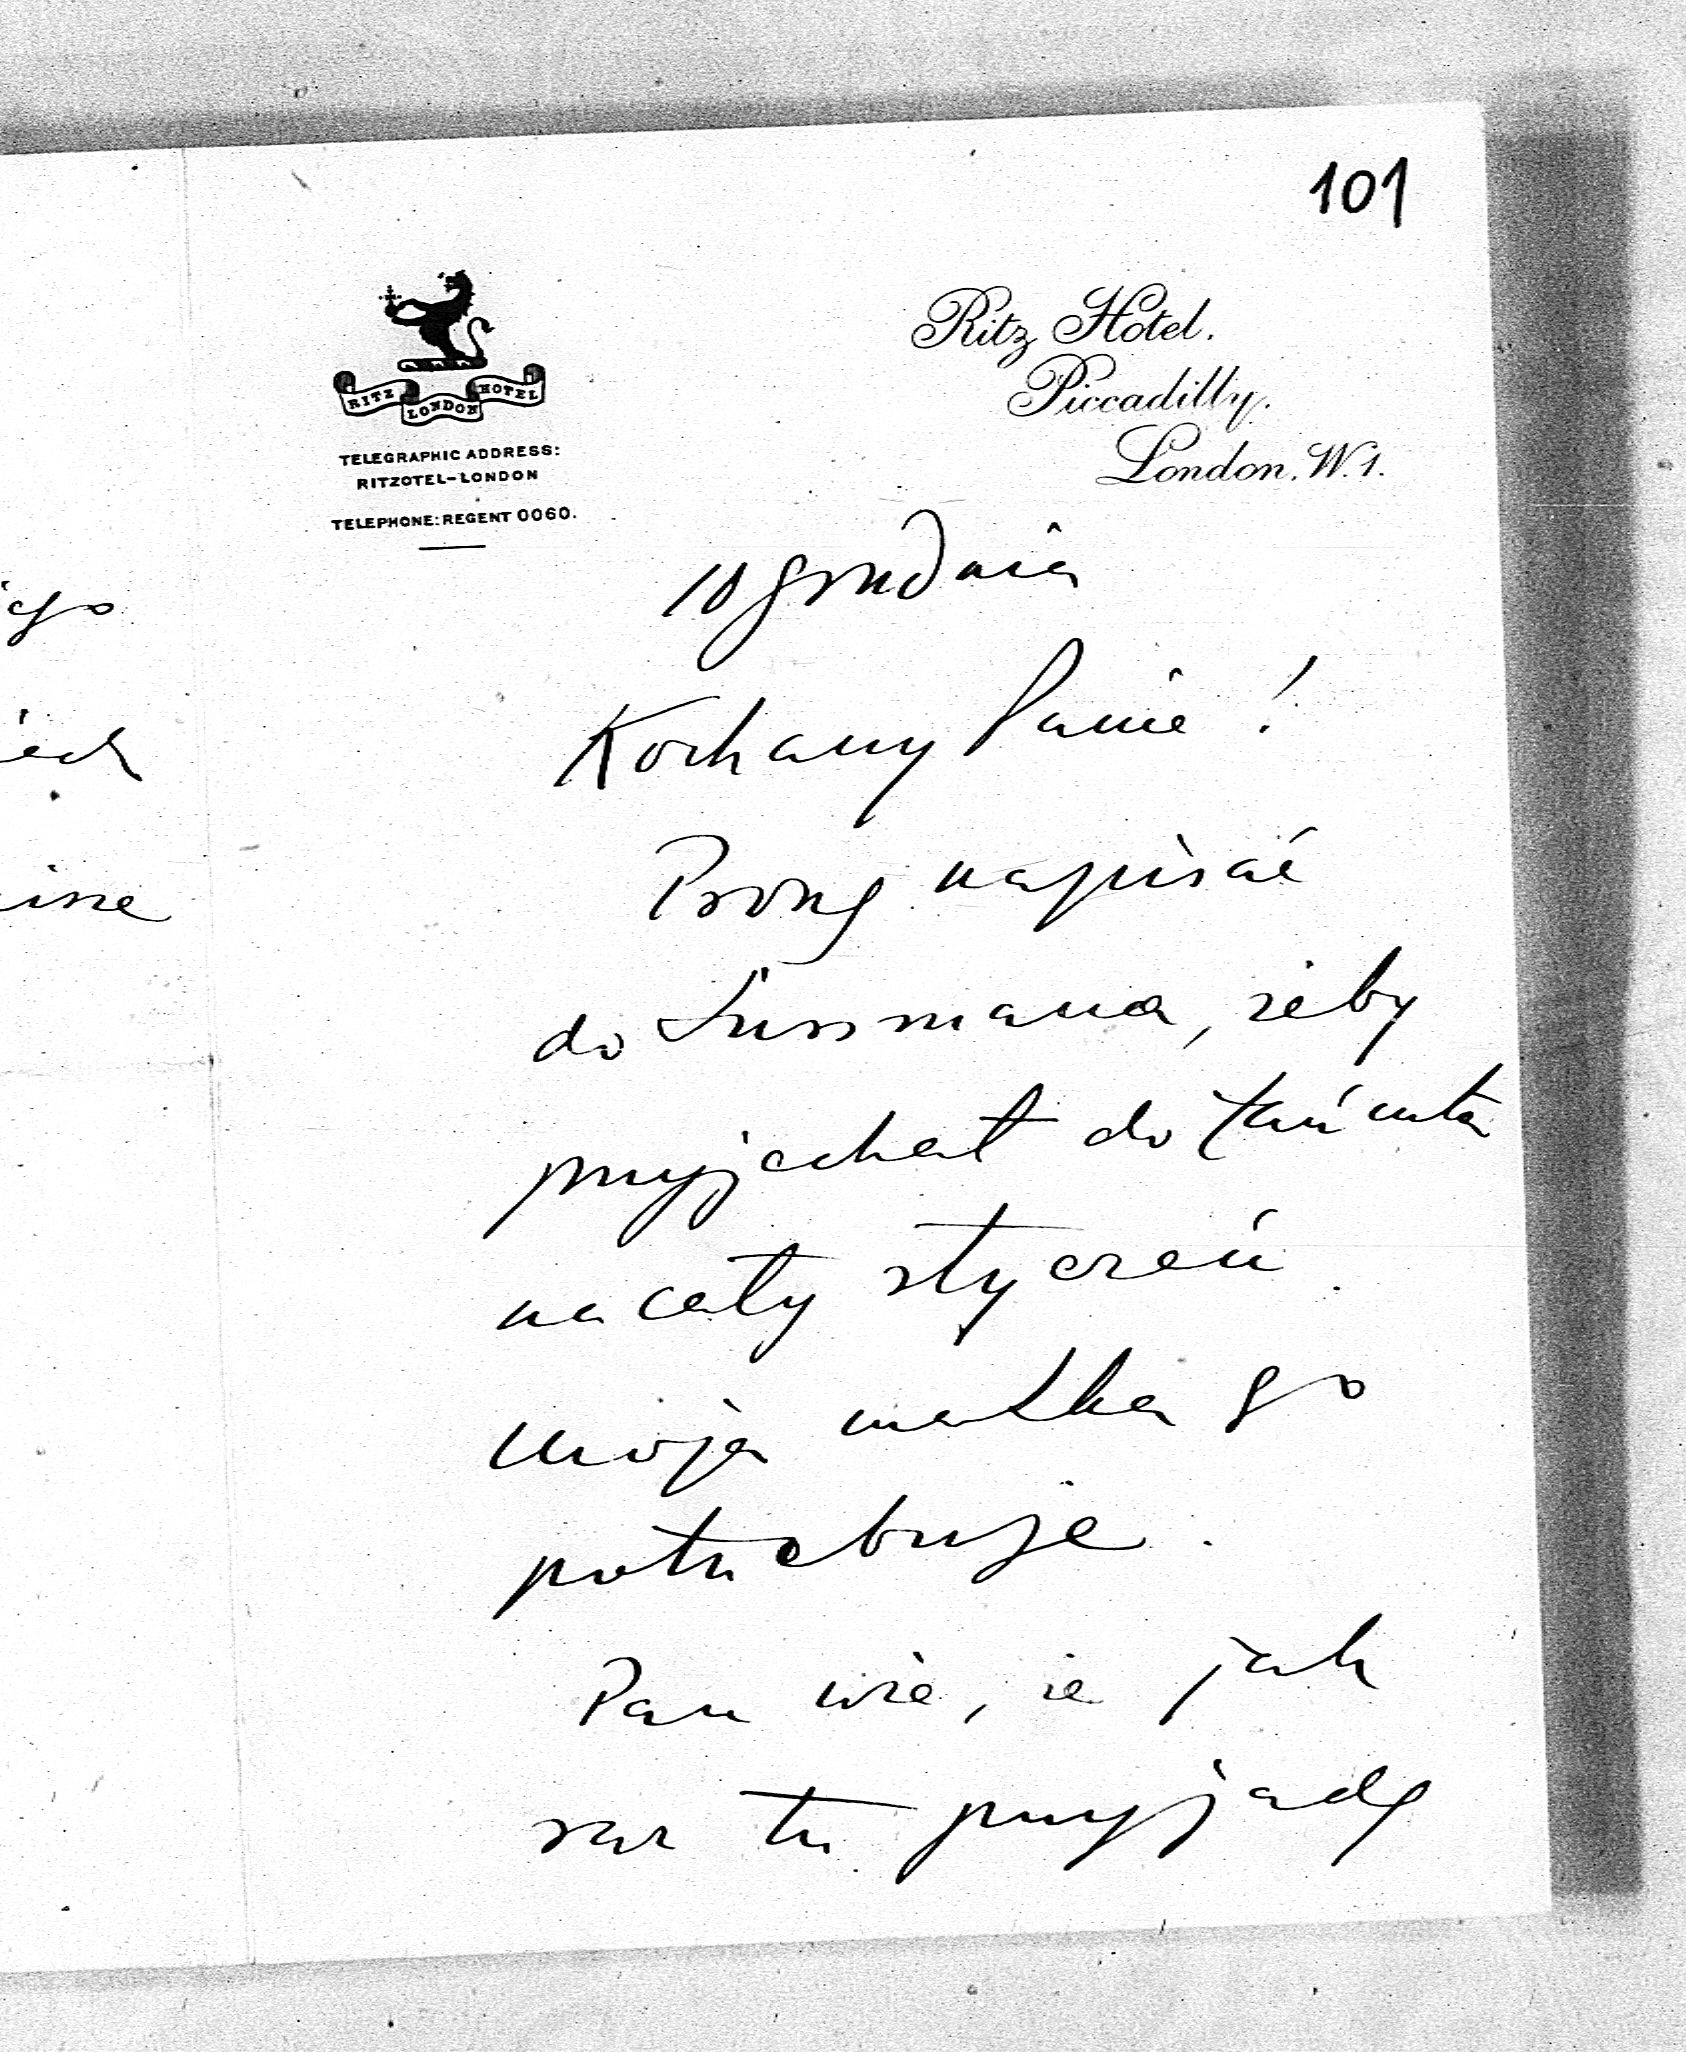 101
Ritz Hotel.
Piccadilly.
London. W. 1.
RITZ LONDON HOTEL
TELEGRAPHIC ADDRESS:
RITZOTEL-LONDON
TELEPHONE: REGENT 0060.
10 grudnia
Kochany Panie!
Proszę napisać
do Sussmana, żeby
przyjechał do Łańcuta
na cały styczeń.
Moja matka go
potrzebuje.
Pan wie, że jak
raz tu przyjadę